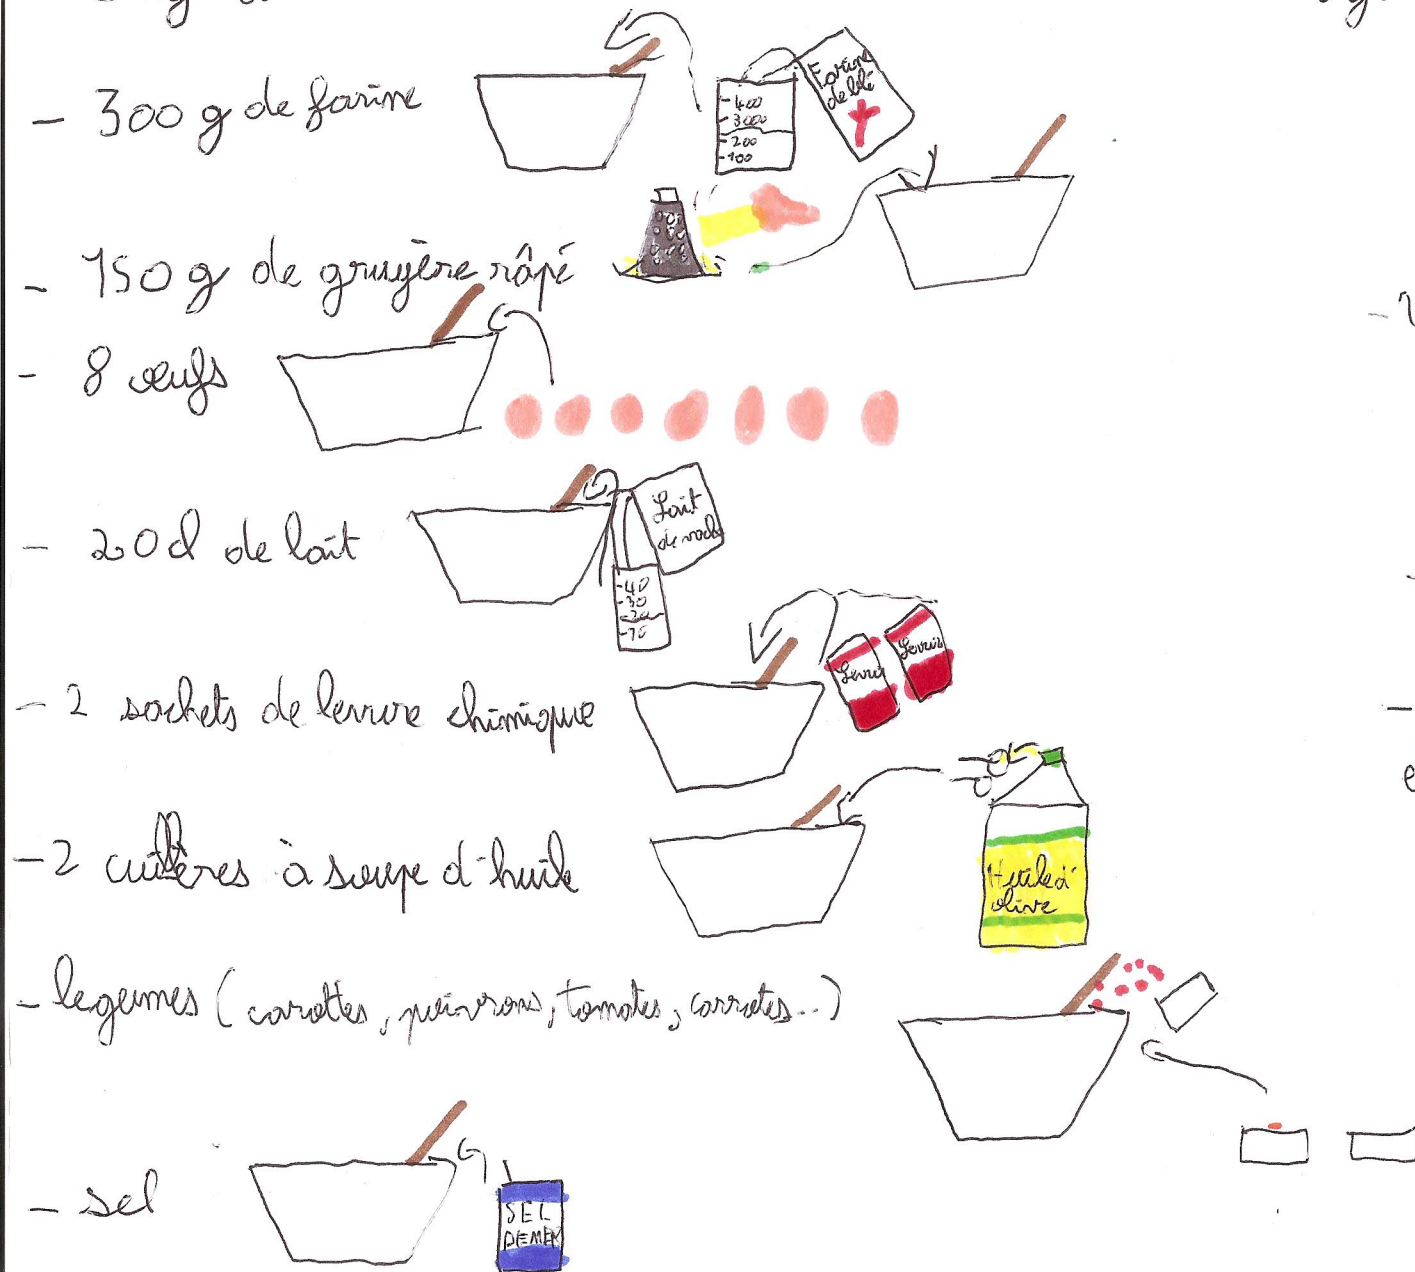 - 300 g de farine
Farine
de blé
- 400
- 3000
- 200
- 100
- 150 g de gruyère râpé
- 8 œufs
- 20 d de lait
Lait
de vache
- 40
- 30
- 20
- 10
- 2 sachets de levure chimique
- 2 cuillères à soupe d'huile
Huile d'
olive
- legumes (carottes, poivrons, tomates, carrotes...)
- sel
SEL
DE MER